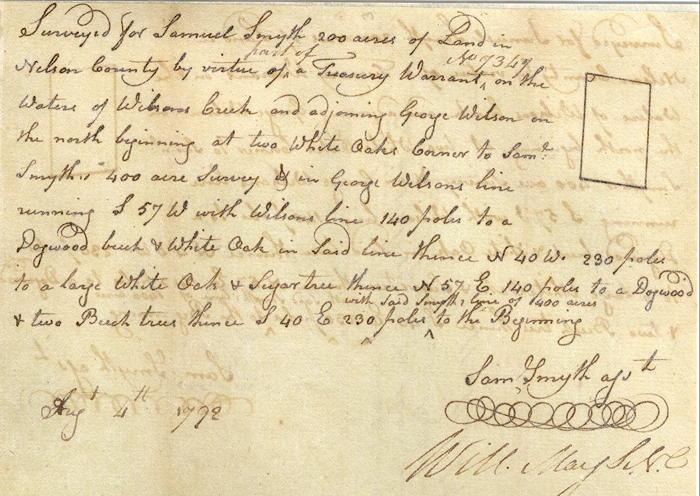 Surveyed for Samuel Smyth 200 acres of Land in
part of No 7347
Nelson County by virtue of a Treasury Warrant on the
Waters of Wilsons Creek and adjoining George Wilson on
the north beginning at two White Oaks Corner to Saml.
Smyths 400 acre Survey & in George Wilsons line
running S 57 W with Wilsons line 140 poles to a
Dogwood beech & White Oak in Said line thence N 40 W. 230 poles
to a large White Oak & Sugartree thence N 57 E. 140 poles to a Dogwood
with Said Smyths line of 1400 acres
& two Beech trees thence S 40 E 230 poles to the Beginning
Saml Smyth asst
Augt 4th 1792
Will. May S.N.C